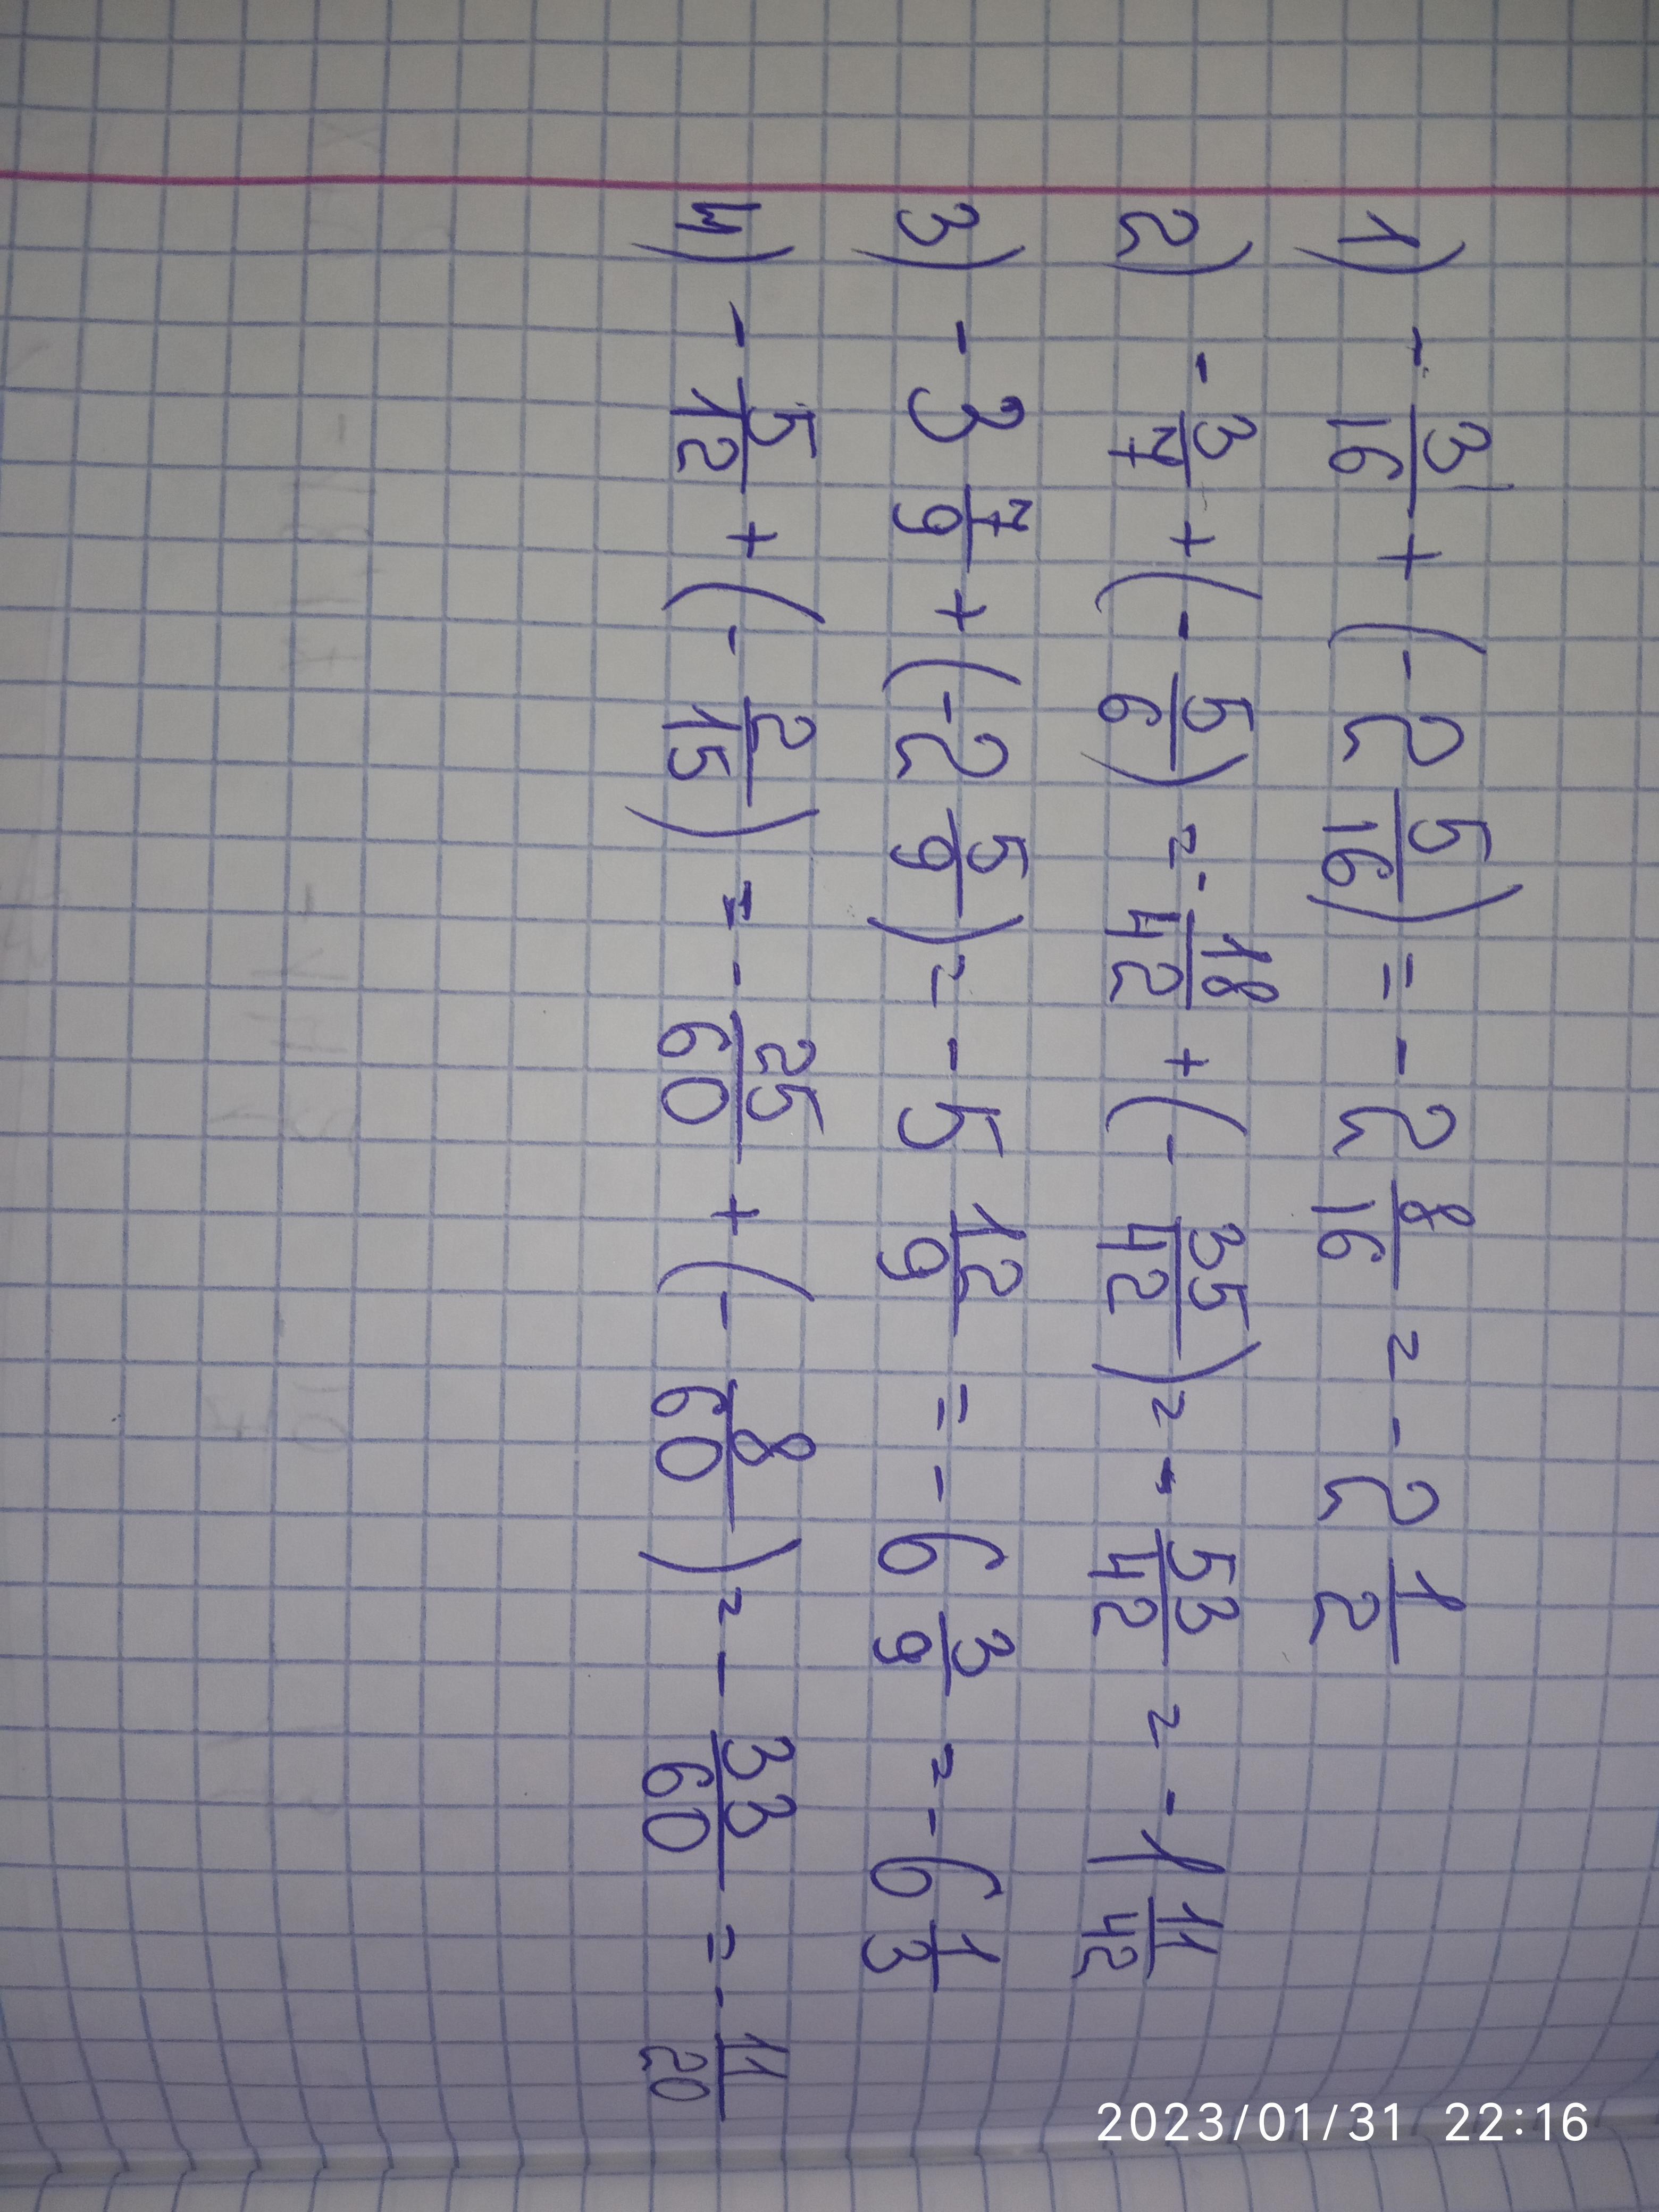 1) - 3/16 + (-2 5/16) = -2 8/16 = -2 1/2
2) - 3/7 + (- 5/6) = - 18/42 + (- 35/42) = - 53/42 = -1 11/42
3) -3 7/9 + (-2 5/9) = -5 12/9 = -6 3/9 = -6 1/3
4) - 5/12 + (- 2/15) = - 25/60 + (- 8/60) = - 33/60 = - 11/20
2023/01/31 22:16